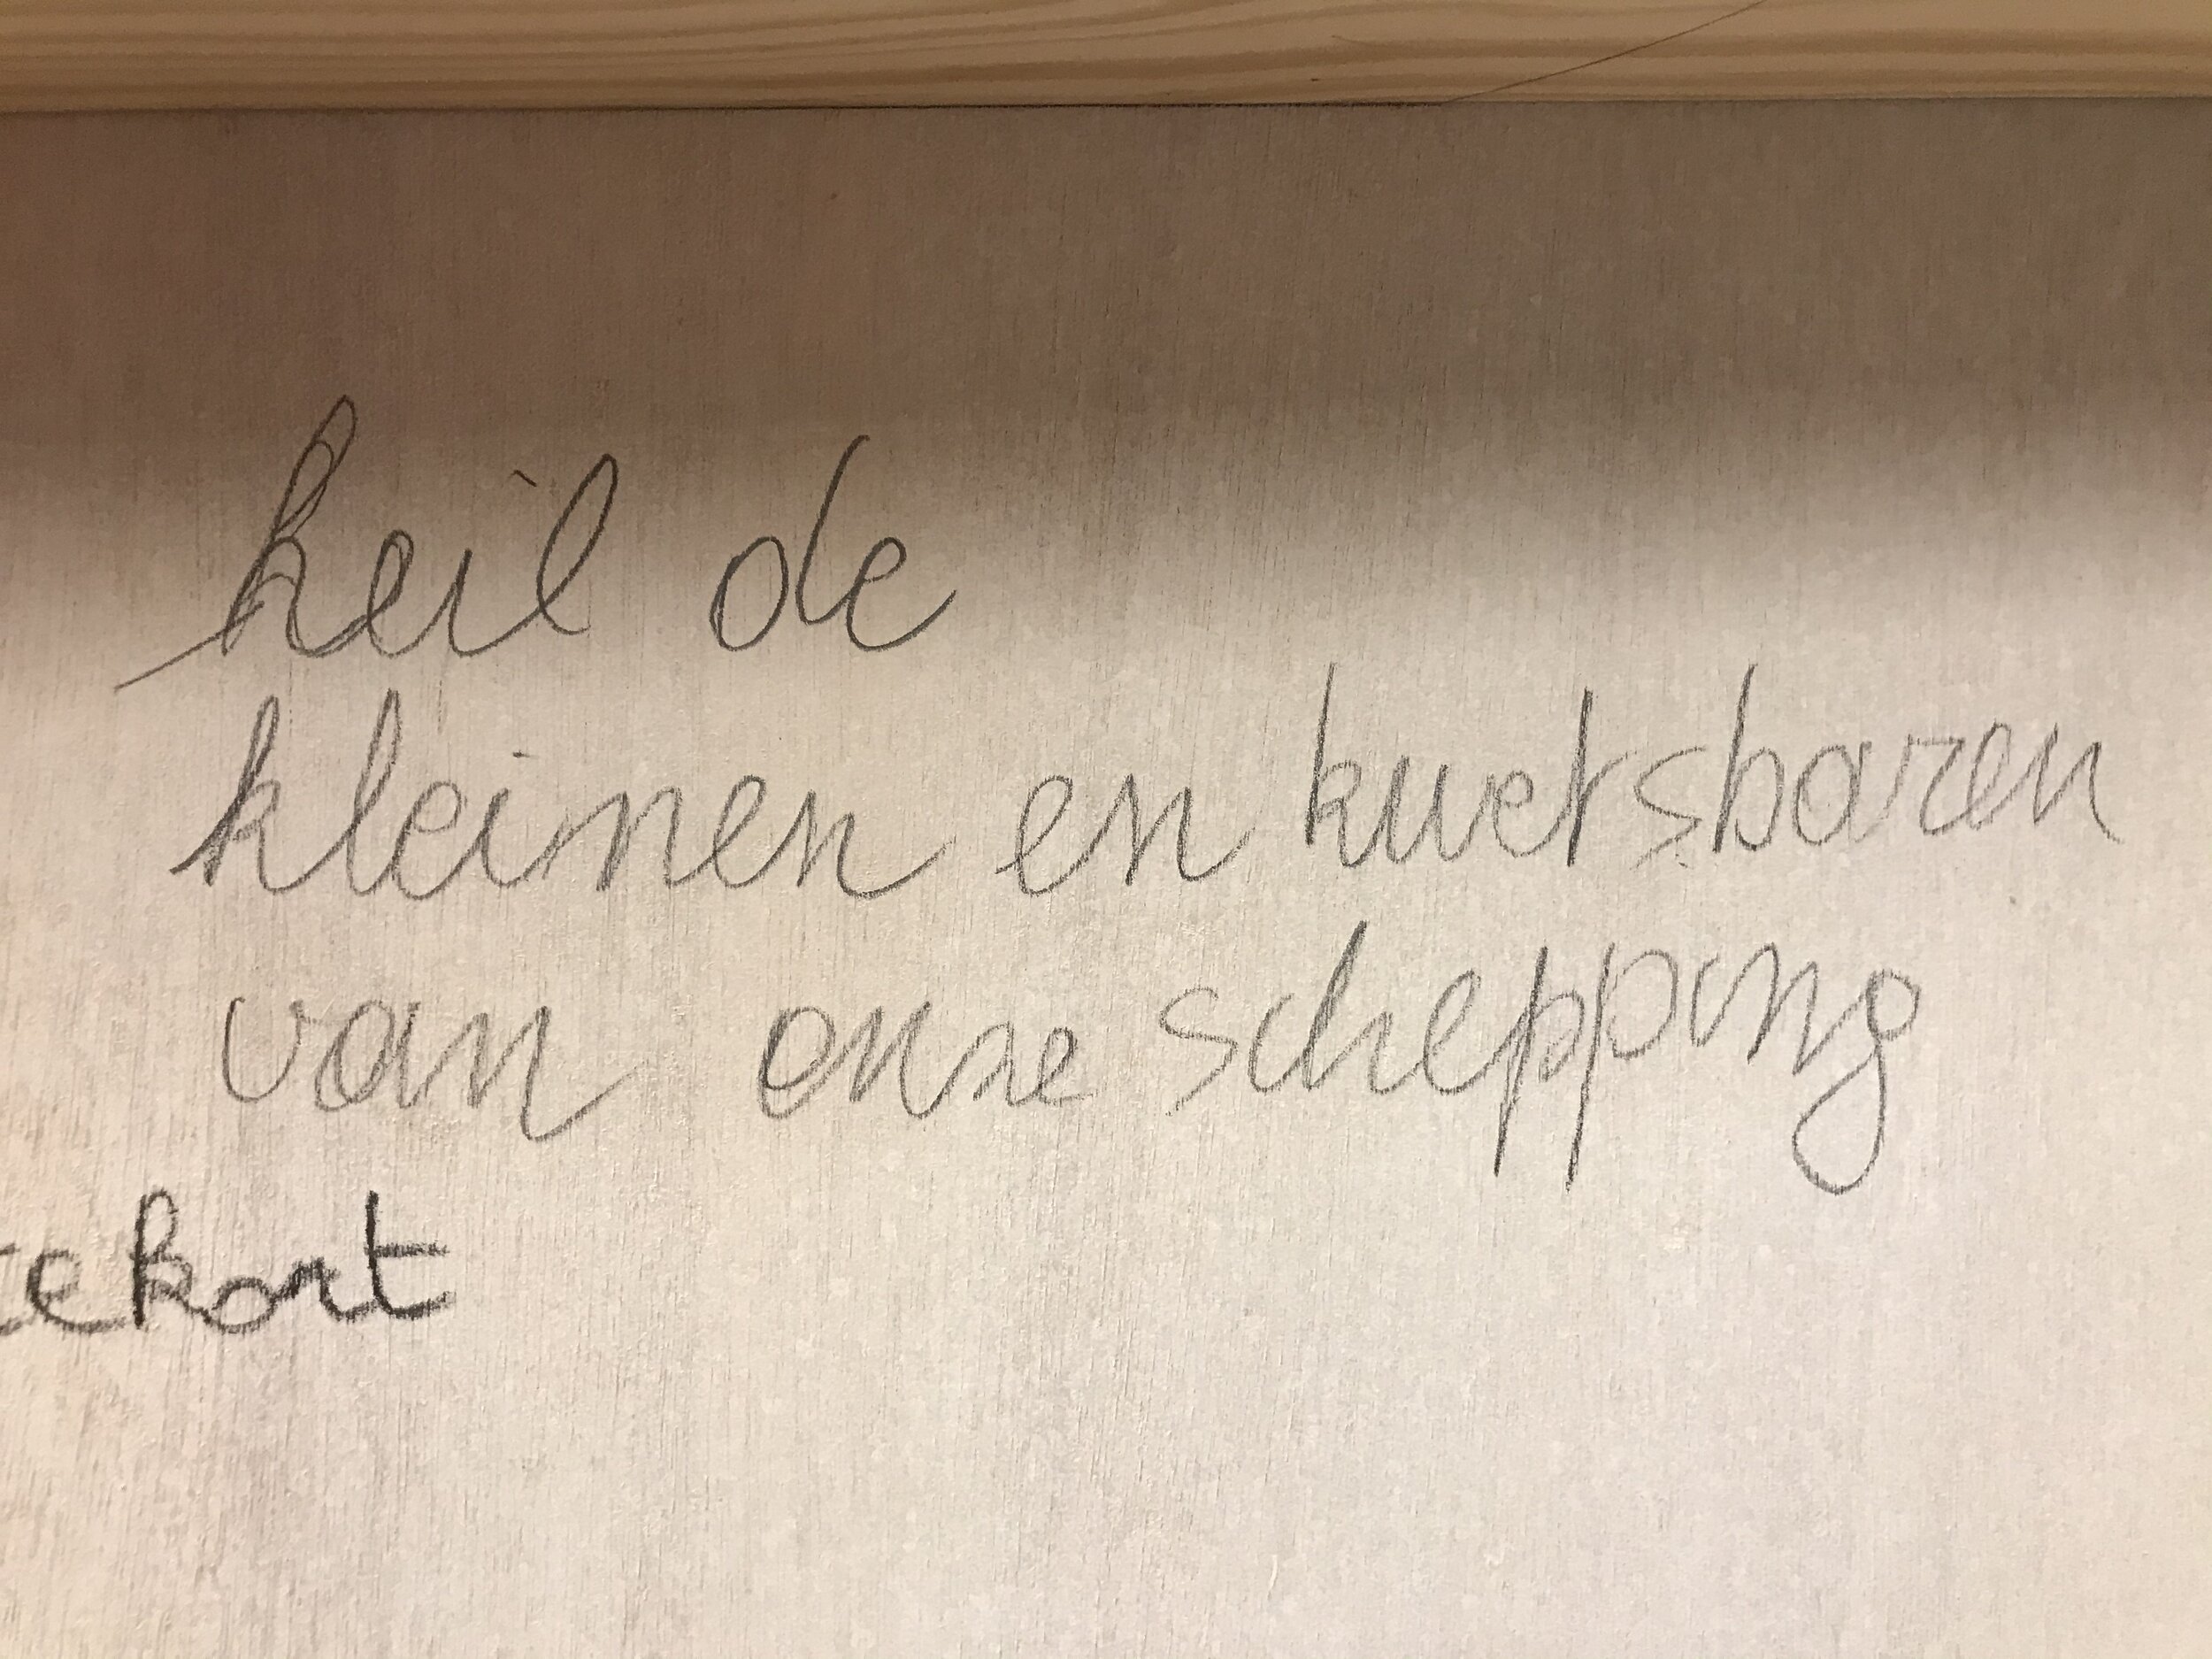 heil de
kleinen en kwetsbaren
van onze schepping
tekort